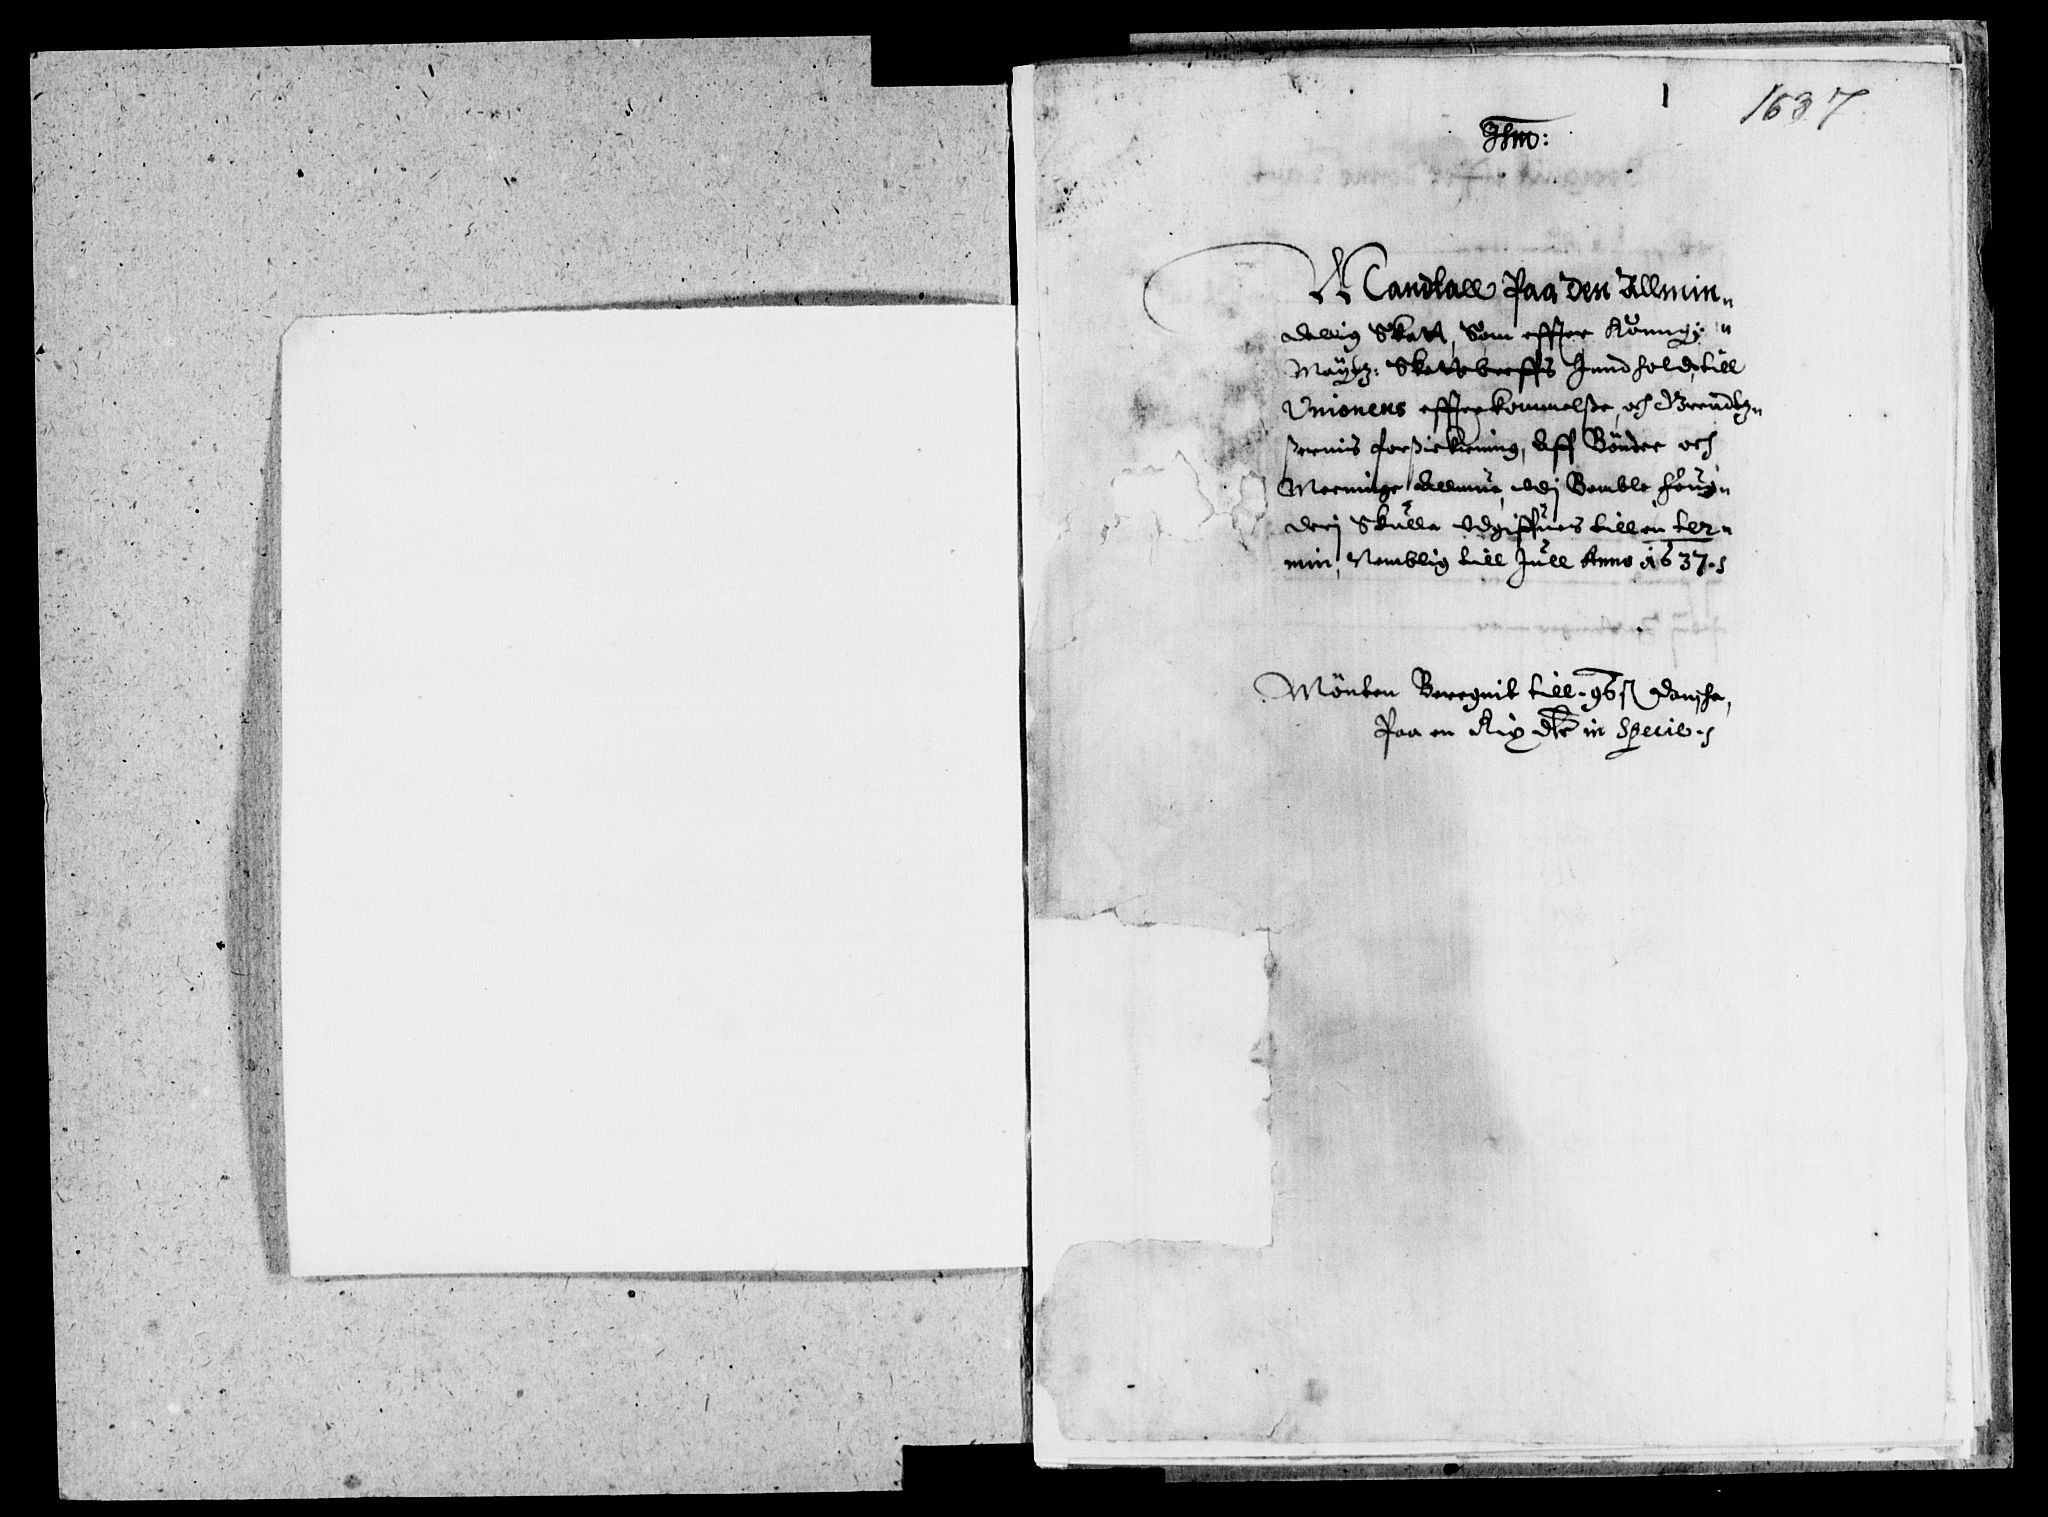 1
1637
Ihm:
Mandtall Paa den Allmin„
delig Skatt, Som effter Konng: „
Maÿtz: Skattebreffs Jnndhold, till
Unionens effterkommelsse, och Grendtz„
sernis forsickring, Aff Bönder och
Menninge Allmue, Udj Bamble fougn
derj Skulle Udgiffues till en ter„
min, Nemblig till Jull Anno 1637.
Mönten Beregnit till 96 ſ Dansche,
Paa en Rix dlr in Specie.